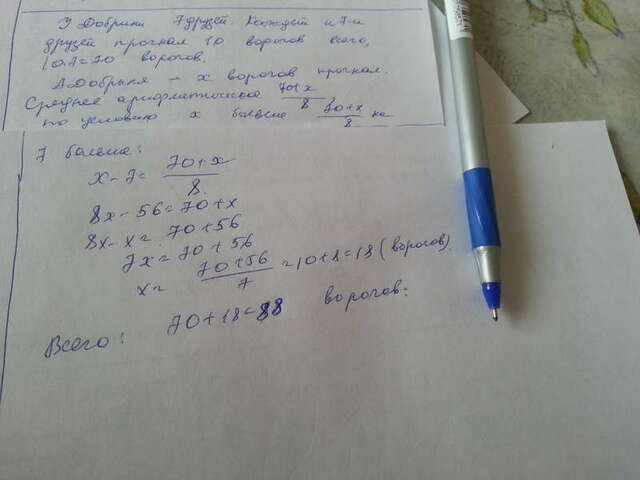 У Добрыни 7 друзей. Каждый из 7-и
друзей прогнал 10 ворогов всего,
10·7=70 ворогов.
А Добрыня – x ворогов прогнал.
Среднее арифметическое (70+x)/8,
по условию x больше (70+x)/8 на
7 больше:
x-7= (70+x)/8.
8x-56=70+x
8x-x= 70+56
7x=70+56
x= (70+56)/7 =10+8=18 (ворогов).
Всего: 70+18=88 ворогов.